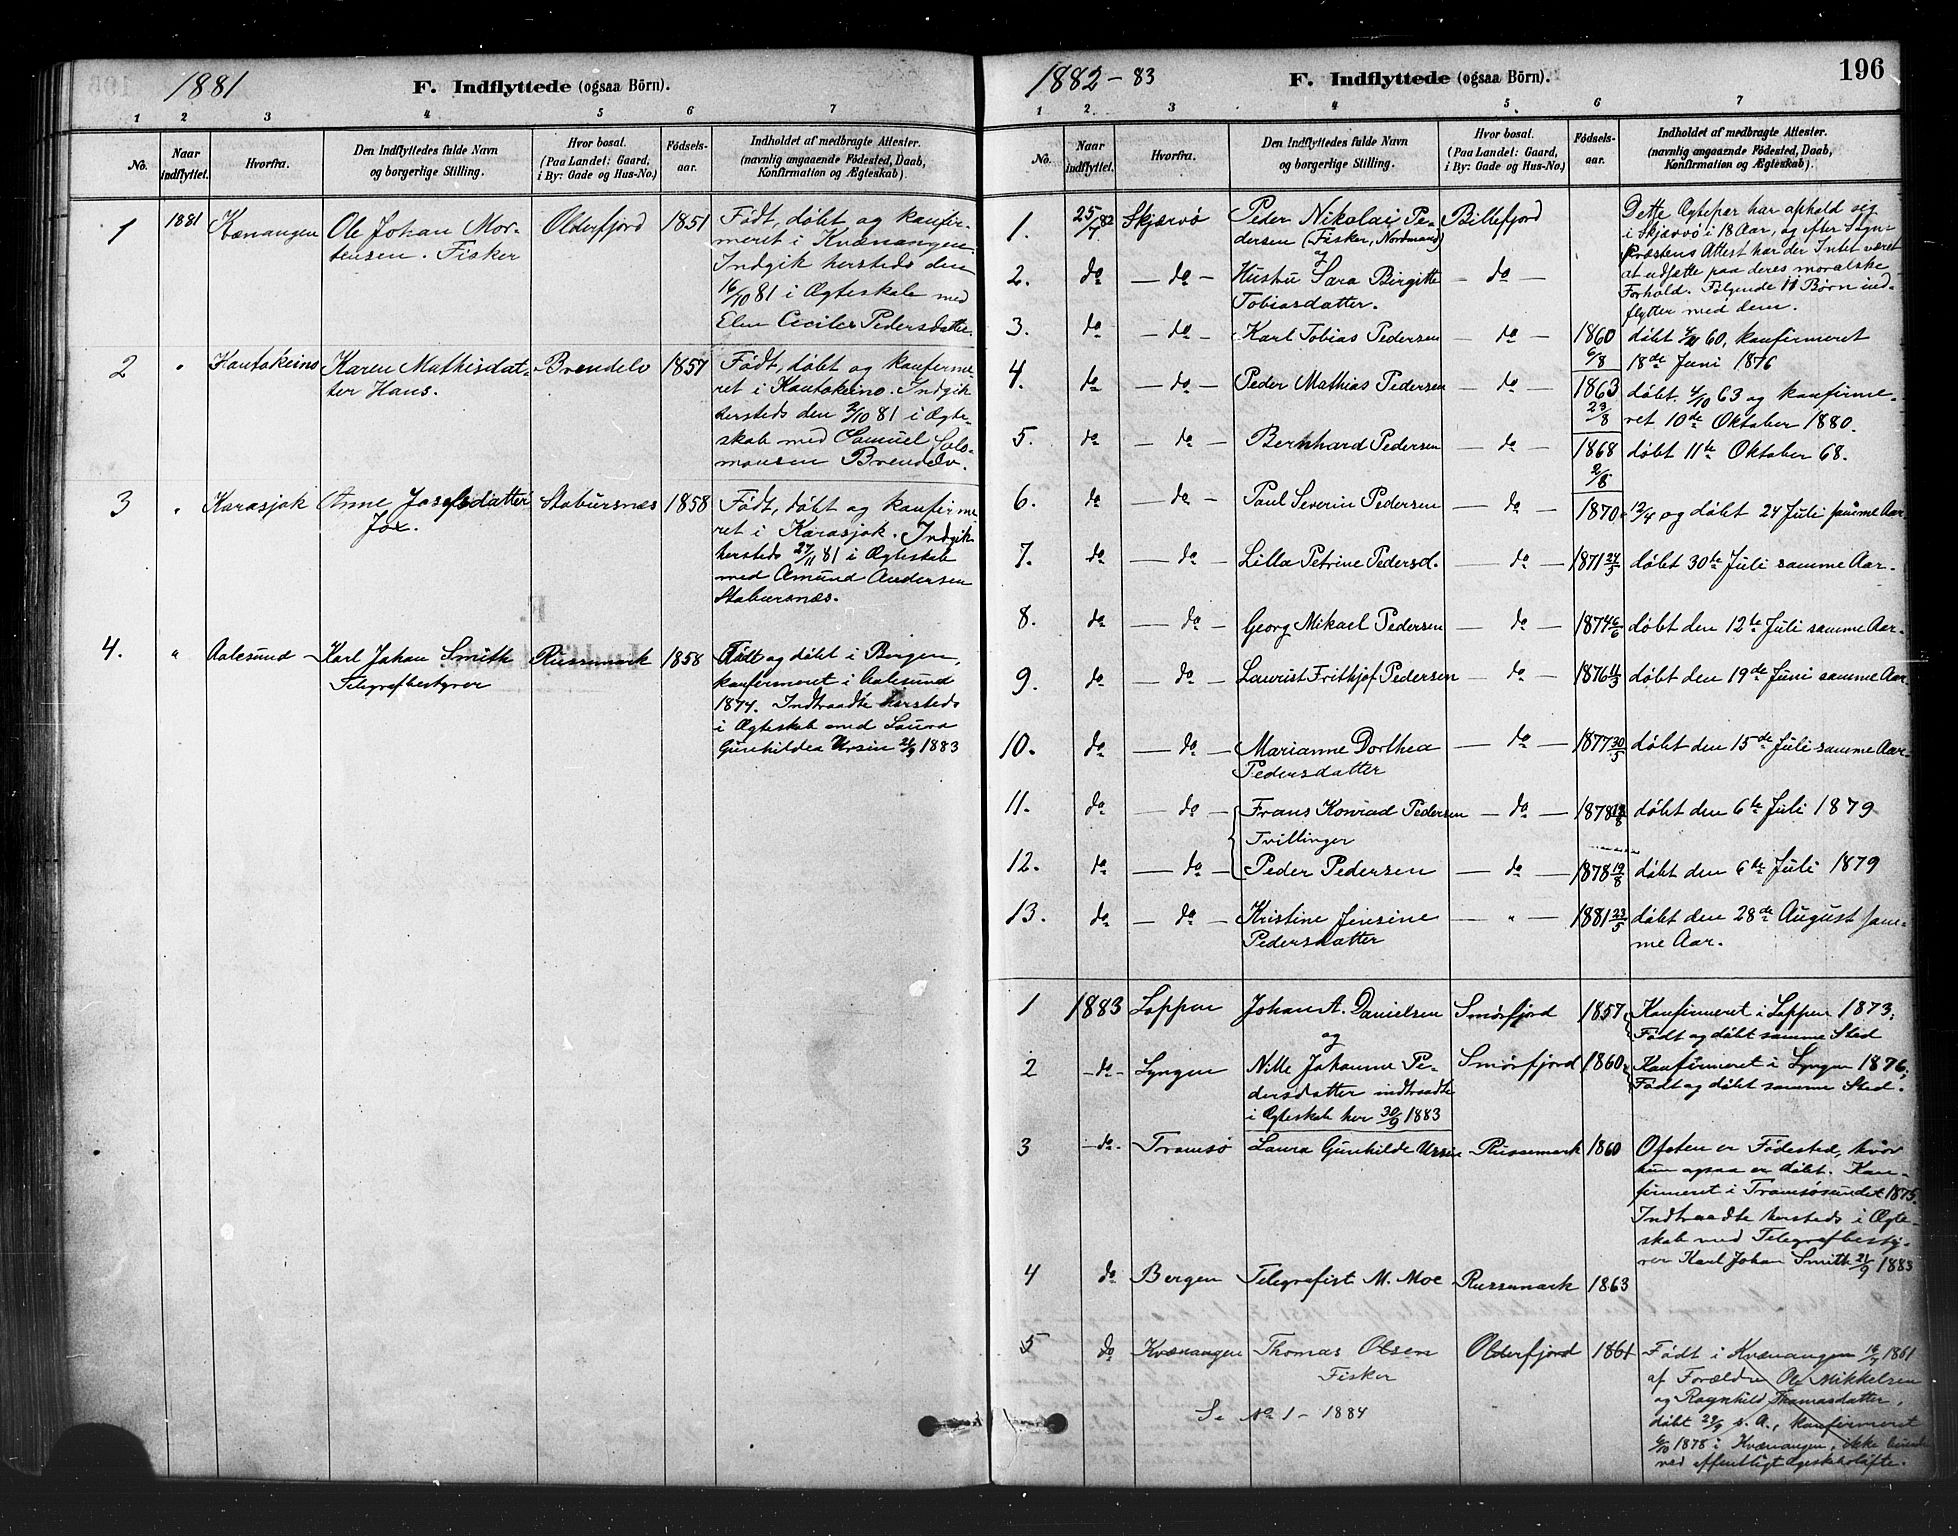 1881
F. Indflyttede (ogsaa Börn).
1 2 3 4 5 6 7
No.
Naar indflyttet.
Hvorfra.
Den Indflyttedes fulde Navn
og borgerlige Stilling.
Hvor bosat.
(Paa Landet: Gaard,
i By: Gade og Hus-No.)
Födsels-
aar.
Indholdet af medbragte Attester.
(navnlig angaaende Födested, Daab,
Konfirmation og Ægteskab).
1 1881 Kvænangen Ole Johan Mor- Olderfjord 1851 Født, døbt og konfir-
tensen. Fisker meret i Kvænangen.
Indgik hersteds den
16/10 81 i Ægteskab med
Elen Cecilie Pedersdatter.
2 " Kautokeino Karen Mathisdat- Brendelv 1857 Født, døbt og konfirme-
ter Hans. ret i Kautokeino. Indgik
hersteds den 2/10 81 i Ægte-
skab med Samuel Salo-
monsen Brendelv.
3 " Karasjok Anne Josefsdatter Stabursnæs 1858 Født, døbt og konfirme
Jox. ret i Karasjok. Indgik
hersteds 27/11 81 i Ægteskab
med Amund Andersen
Stabursnæs.
4. " Aalesund Karl Johan Smith Russemark 1858 Født og døbt i Bergen,
Telegrafbestyrer konfirmeret i Aalesund
1874. Indtraadte hersteds
i Ægteskab med Laura
Gunhilda Ursin 21/9 1883
1882-83
F. Indflyttede (ogsaa Börn).
196
1 2. 3 4 5. 6 7
No.
Naar indflyttet.
Hvorfra.
Den Indflyttedes fulde Navn
og borgerlige Stilling.
Hvor bosat.
(Paa Landet: Gaard,
i By: Gade og Hus-No.)
Födsels-
aar.
Indholdet af medbragte Attester.
(navnlig angaaende Födested, Daab,
Konfirmation og Ægteskab).
1. 25/7 82 Skjærvö Peder Nikolai Pe- Billefjord Dette Ægtepar har ophold sig
dersen (Fisker, Nordmand) i Skjærvö i 18 Aar, og efter Sogne-
og Præstens Attest har der Intet været
2. do — do — Hustru Sara Birgitte — do — at udsætte paa deres moralske
Tobiasdatter. Forhold. Følgende 11 Børn ind-
flytter med dem.
3. do — do — Karl Tobias Pedersen — do — 1860 6/8 døbt 60, konfirmeret
18de Juni 1876
4. do — do — Peder Mathias Pedersen — do — 1863 23/8 døbt 4/10 63 og konfirme-
ret 10de Oktober 1880.
5. do — do — Bernhard Pedersen — do — 1868 2/8 døbt 11te Oktober 68.
6. do — do — Paul Severin Pedersen — do — 1870 12/4 og døbt 24 Juli samme Aar.
7. do — do — Lilla Petrine Pedersd. — do — 1871 24/5 døbt 30te Juli samme Aar.
8. do — do — Georg Mikael Pedersen — do — 1874 6/6 døbt den 12te Juli samme Aar.
9. do — do — Laurist Frithjof Pedersen — do — 1876 11/3 døbt den 19de Juni samme Aar.
10. do — do — Marianne Dorthea — do — 1877 30/5 døbt den 15de Juli samme Aar.
Pedersdatter
11. do — do — Frans Konrad Pedersen — do — 1878 døbt den 6te Juli 1879
Tvillinger
12. do — do — Peder Pedersen — do — 1878 19/8 døbt den 6te Juli 1879
13. do — do — Kristine Jensine — " — 1881 23/5 døbt den 28de August sam-
Pedersdatter me Aar.
1 1883 Loppen Johan A. Danielsen Smörfjord 1857 Konfirmeret i Loppen 1873;
og Født og døbt samme Sted
2 -do- Lyngen Nille Johanne Pe- Smörfjord 1860 Konfirmeret i Lyngen 1876;
dersdatter indtraadte Født og døbt samme Sted.
i Ægteskab her 30/9 1883
3 -do- Tromsö Laura Gunhilde Ursin Russemark 1860 Ofoten er Fødested, hvor
hun ogsaa er døbt. Kon-
firmeret i Tromsøsundet 1875.
Indtraadte hersteds i Ægte-
skab med Telegrafbesty-
rer Karl Johan Smith 21/9 1883
4 do Bergen Telegrafist M. Moe Russemark 1863
5 do Kvænangen Thomas Olsen Olderfjord 1861 Født i Kvænangen 1861
Fisker af Forældre Ole Mikkelsen
S. No 1 - 1884 og Ragnhild Thomasdatter,
døbt 29/9 s. A., konfirmeret
6/10 1878 i Kvænangen, ikke bunden
ved offentligt Ægteskabsløfte.